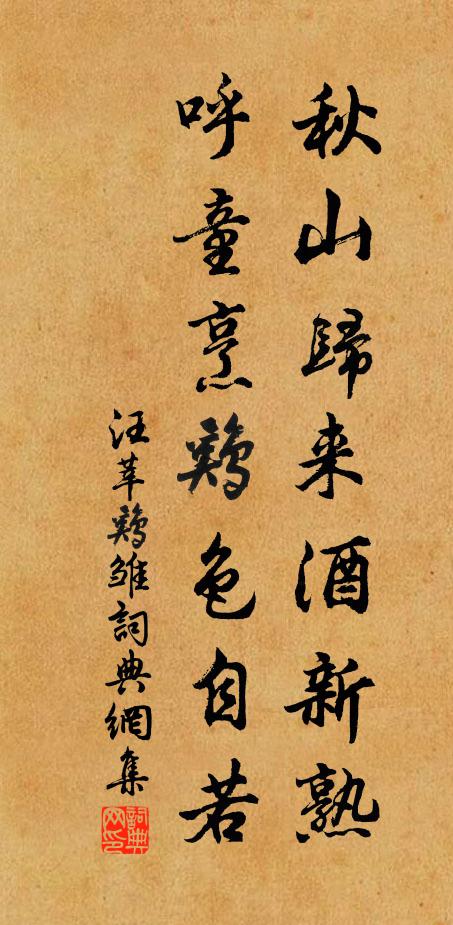 秋山歸来酒新熟
呼童烹鷄色自若
汪莘鷄雏詞典網集
詞典
网印